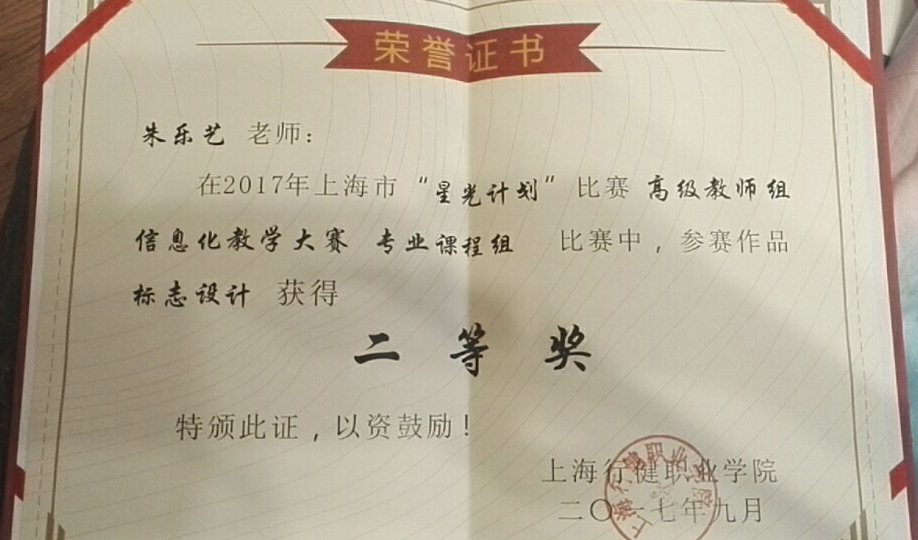 荣誉证书
朱乐艺 老师：
在2017年上海市“星光计划”比赛 高级教师组
信息化教学大赛 专业课程组 比赛中，参赛作品
标志设计 获得
二等奖
特颁此证，以资鼓励！
上海行健职业学院
二〇一七年九月